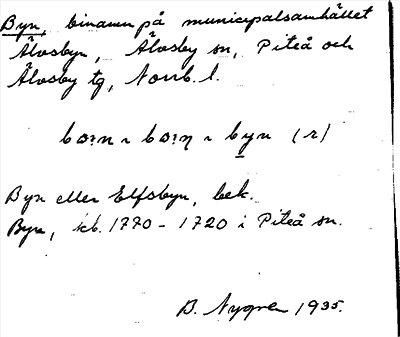 Byn, binamn på municipalsamhället
Älvsbyn, Älvsby sn, Piteå och
Älvsby tg, Norrb. l.
Byn eller Elfsbyn, bek.
Byn, kb. 1770 - 1720 i Piteå sn.
B. Nygren 1935.